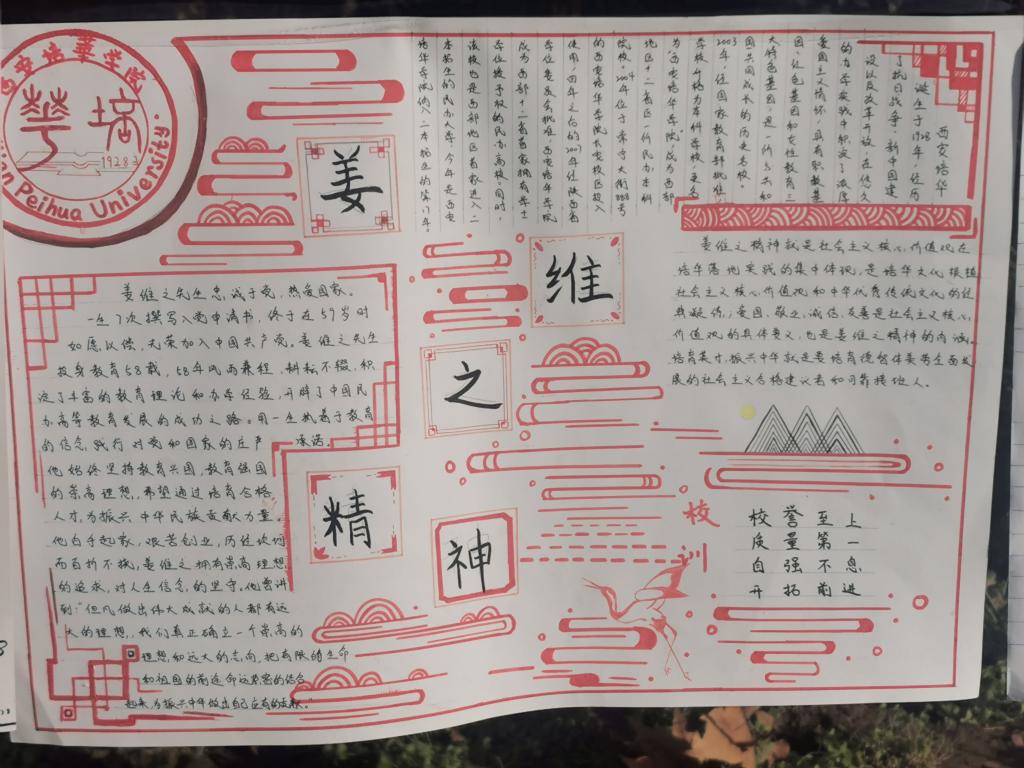 西安培華学院
華培
1928
Xi'an Peihua University.
姜
维
之
精
神
西安培华
诞生于1928年,经历
了抗日战争、新中国建
设以及改革开放,在悠久
的办学实践中积淀了浓厚
爱国主义情怀,具有职教基
因、红色基因和女性教育三
大特色基因,是一所与共和
国共同成长的历史名校。
2003年,经国家教育部批准,
学校升格为本科学校,更名
为"西安培华学院",成为西部
地区十二省区一所民办本科
院校。2004年位于常宁大街888号
的西安培华学院长安校区投入
使用,四年之后的2007年经陕西省
学位委员会批准,西安培华学院
成为西部十二省首家拥有学士
学位授予权的民办高校。同时,
该校也是西部地区首家进入二
本招生的民办大学,今年是西安
培华学院纳入二本招生的第11年。
姜维之精神就是社会主义核心价值观在
培华落地实践的集中体现,是培华文化根植
社会主义核心价值观和中华优秀传统文化的经
典凝仿,爱国、敬业、诚信、友善是社会主义核心
价值观的具体要义,也是姜维之精神的内涵。
培育英才,振兴中华就是要培育德智体美劳全面发
展的社会主义合格建设者和可靠接班人。
姜维之先生忠诚于党,热爱国家。
一生7次撰写入党申请书,终于在59岁时
如愿以偿,光荣加入中国共产党。姜维之先生
投身教育58载,58年风雨兼程,耕耘不辍,积
淀了丰富的教育理论和办学经验,开辟了中国民
办高等教育发展的成功之路。用一生执着于教育
的信念,践行对党和国家的庄严承诺。
他始终坚持教育兴国,教育强国
的崇高理想,希望通过培育合格
人才,为振兴中华民族贡献力量。
他白手起家,艰苦创业,历经坎坷
而百折不挠,姜维之拥有崇高理想
的追求,对人生信念的坚守。他曾讲
到:"但凡做出伟大成就的人都有远
大的理想,我们真正确立一个崇高的
理想和远大的志向,把有限的生命
和祖国的前途命运紧密的结合
起来,为振兴中华做出自己应有的贡献。"
校训
校誉至上
质量第一
自强不息
开拓前进